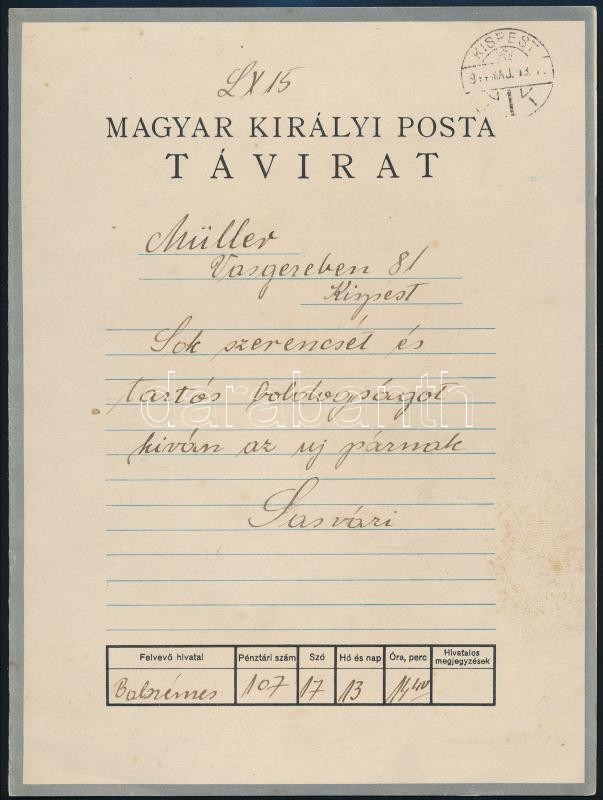 LX 15
KISPEST
MAGYAR KIRÁLYI POSTA
TÁVIRAT
Müller
Vasgereben 81
Kispest
Sok szerencsét és
tartós boldogságot
kiván az uj párnak
Sasvári
darabanth
Felvevő hivatal Pénztári szám Szó Hó és nap Óra, perc Hivatalos megjegyzések
107 17 13